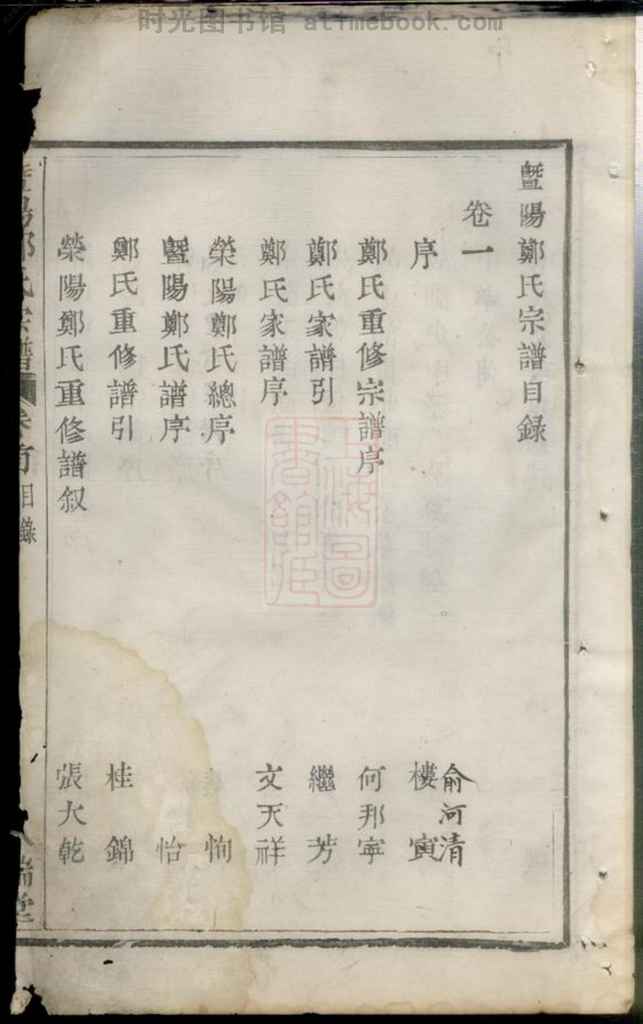 时光图书馆 atimebook.com
暨陽鄭氏宗譜目錄
卷一
序 俞河清 樓寅
鄭氏重修宗譜序 何邦寧
鄭氏家譜引 繼芳
鄭氏家譜序 文天祥
滎陽鄭氏總序 恂
暨陽鄭氏譜序 怡
鄭氏重修譜引 桂錦
滎陽鄭氏重修譜叙 張大乾
暨陽鄭氏宗譜 目錄